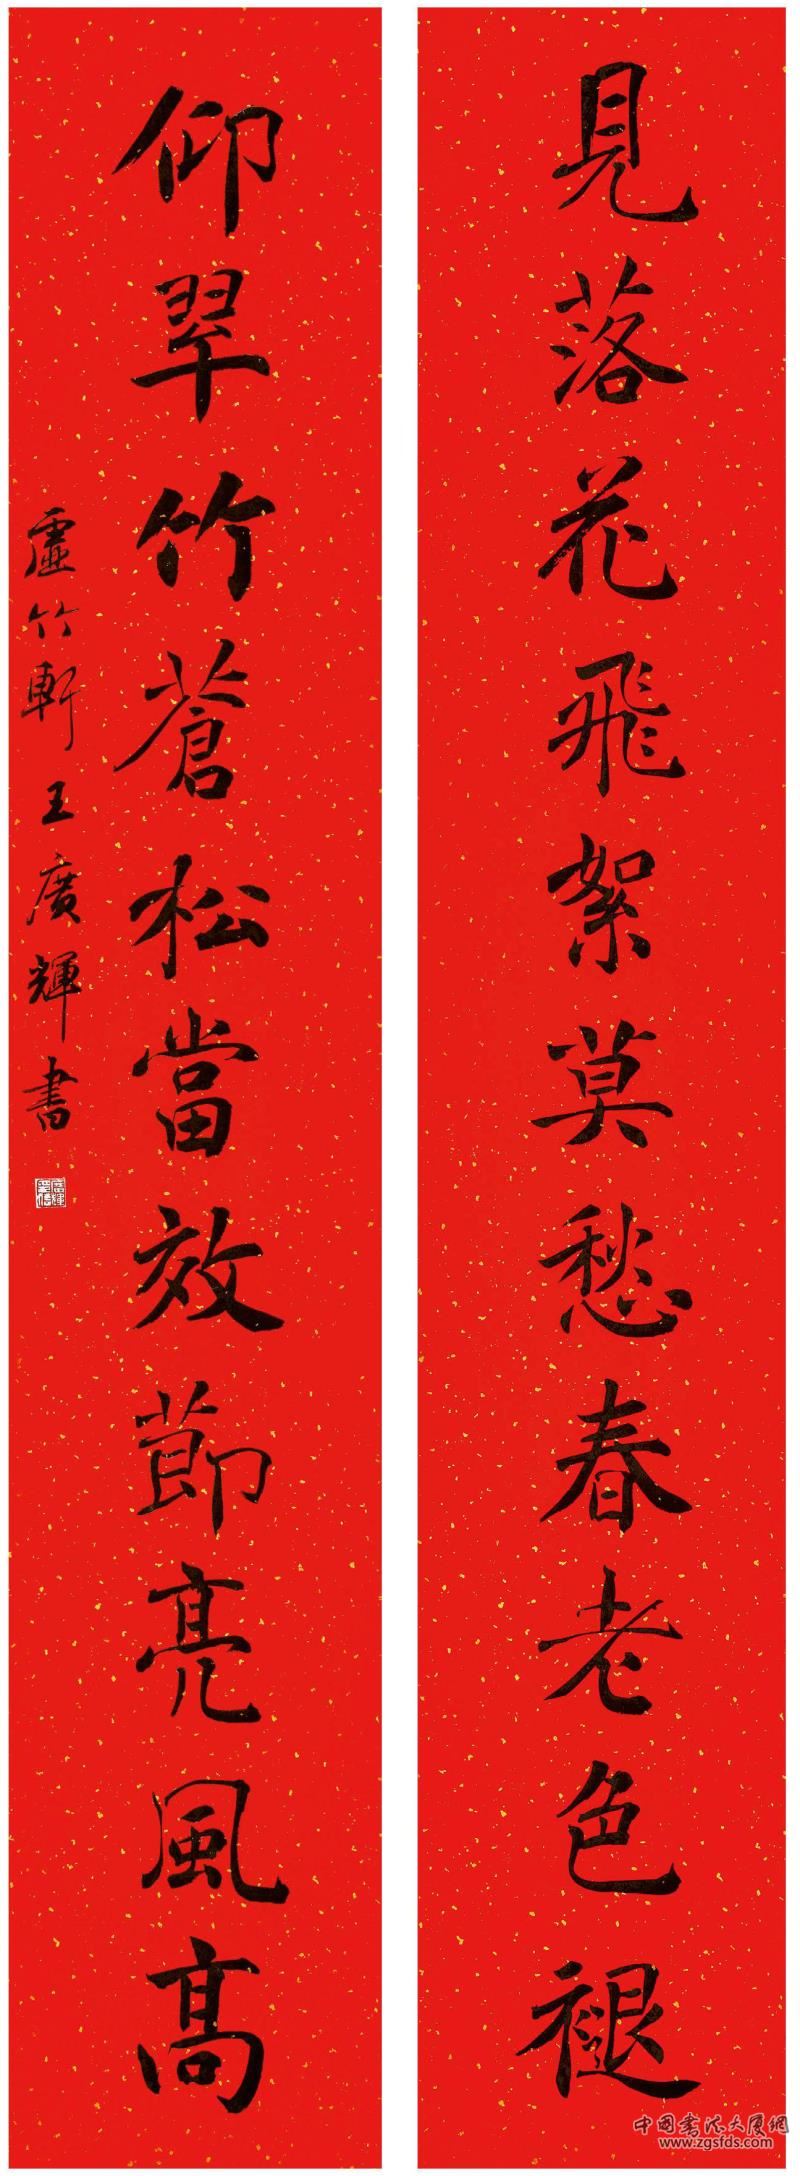 見落花飛絮莫愁春老色褪
仰翠竹蒼松當效節亮風高
虛竹軒王廣輝書
中国书法大厦網
www.zgsfds.com